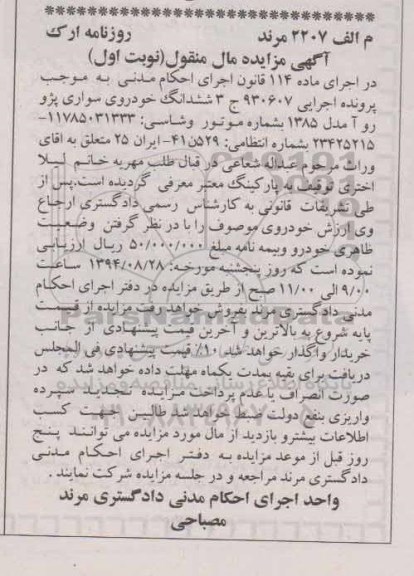 م الف ۲۲۰۷ مرند روزنامه ارک
آگهی مزایده مال منقول(نوبت اول)
در اجرای ماده ۱۱۴ قانون اجرای احکام مدنی به موجب
پرونده اجرایی ۹۳۰۶۰۷ ج ۳ ششدانگ خودروی سواری پژو
رو آ مدل ۱۳۸۵ بشماره موتور وشاسی: ۱۱۷۸۵۰۳۱۳۳۳-
۲۳۴۲۵۲۱۵ بشماره انتظامی: ۵۲۹ن۴۱- ایران ۲۵ متعلق به اقای
وراث مرحوم عبداله شعاعی در قبال طلب مهریه خانم لیلا
اختری توقیف به پارکینگ معتبر معرفی گردیده است.پس از
طی تشریفات قانونی به کارشناس رسمی دادگستری ارجاع
وی ارزش خودروی موصوف را با در نظر گرفتن وضعیت
ظاهری خودرو وبیمه نامه مبلغ ۵۰/۰۰۰/۰۰۰ ریال ارزیابی
نموده است که روز پنجشنبه مورخه: ۱۳۹۴/۰۸/۲۸ ساعت
۹/۰۰ الی ۱۱/۰۰ صبح از طریق مزایده در دفتر اجرای احکام
مدنی دادگستری مرند بفروش خواهد رفت مزایده از قیمت
پایه شروع به بالاترین و آخرین قیمت پیشنهادی از جانب
خریدار واگذار خواهد شد ۱۰٪ قیمت پیشنهادی فی المجلس
دریافت برای بقیه بمدت یکماه مهلت داده خواهد شد که در
صورت انصراف یا عدم پرداخت مزایده تجدید سپرده
واریزی بنفع دولت ضبط خواهد شد طالبین جهت کسب
اطلاعات بیشترو بازدید از مال مورد مزایده می توانند پنج
روز قبل از موعد مزایده به دفتر اجرای احکام مدنی
دادگستری مرند مراجعه و در جلسه مزایده شرکت نمایند.
واحد اجرای احکام مدنی دادگستری مرند
مصباحی